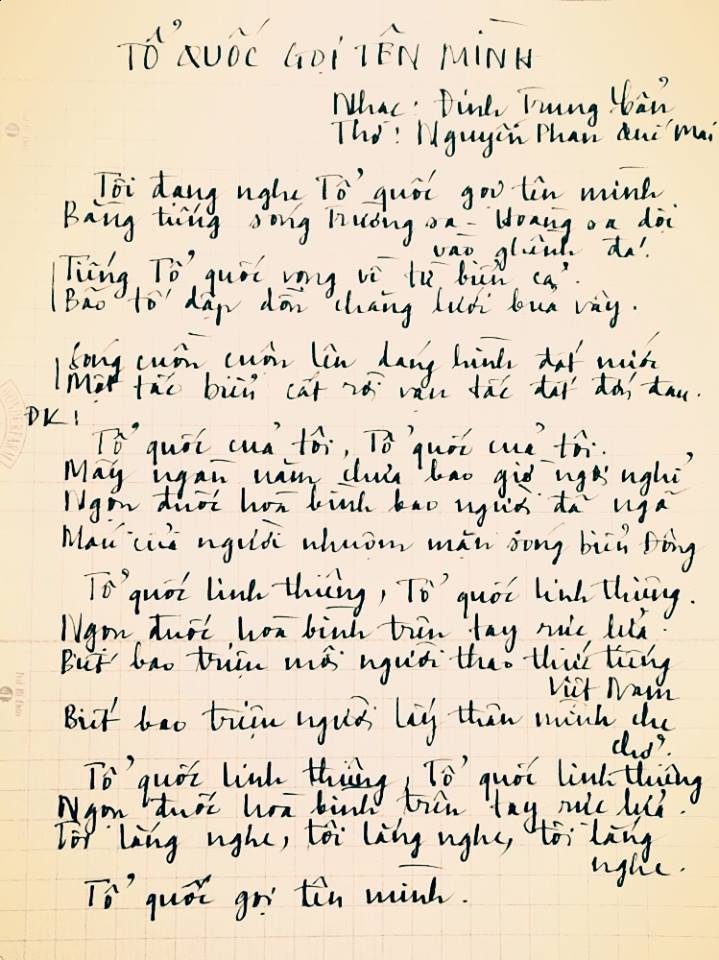 TỔ QUỐC GỌI TÊN MÌNH
Nhạc: Đinh Trung Cẩn
Thơ: Nguyễn Phan Quế Mai
Tôi đang nghe Tổ quốc gọi tên mình
Bằng tiếng sóng Trường sa - Hoàng sa dội
vào ghềnh đá.
Tiếng Tổ quốc vọng về từ biển cả.
Bão tố dập dồn chăng lưới bủa vây.
Sóng cuồn cuộn lên dáng hình đất nước
Một tấc biển cắt rời vạn tấc đất đớn đau.
ĐK:
Tổ quốc của tôi, Tổ quốc của tôi.
Mấy ngàn năm chưa bao giờ ngơi nghỉ
Ngọn đuốc hoà bình bao người đã ngã
Máu của người nhuộm mặn sóng biển Đông
Tổ quốc linh thiêng, Tổ quốc linh thiêng.
Ngọn đuốc hoà bình trên tay rực lửa.
Biết bao triệu mỗi người thao thức tiếng
Việt Nam
Biết bao triệu người lấy thân mình che
chở.
Tổ quốc linh thiêng, Tổ quốc linh thiêng
Ngọn đuốc hoà bình trên tay rực lửa.
Tôi lắng nghe, tôi lắng nghe, tôi lắng
nghe.
Tổ quốc gọi tên mình.